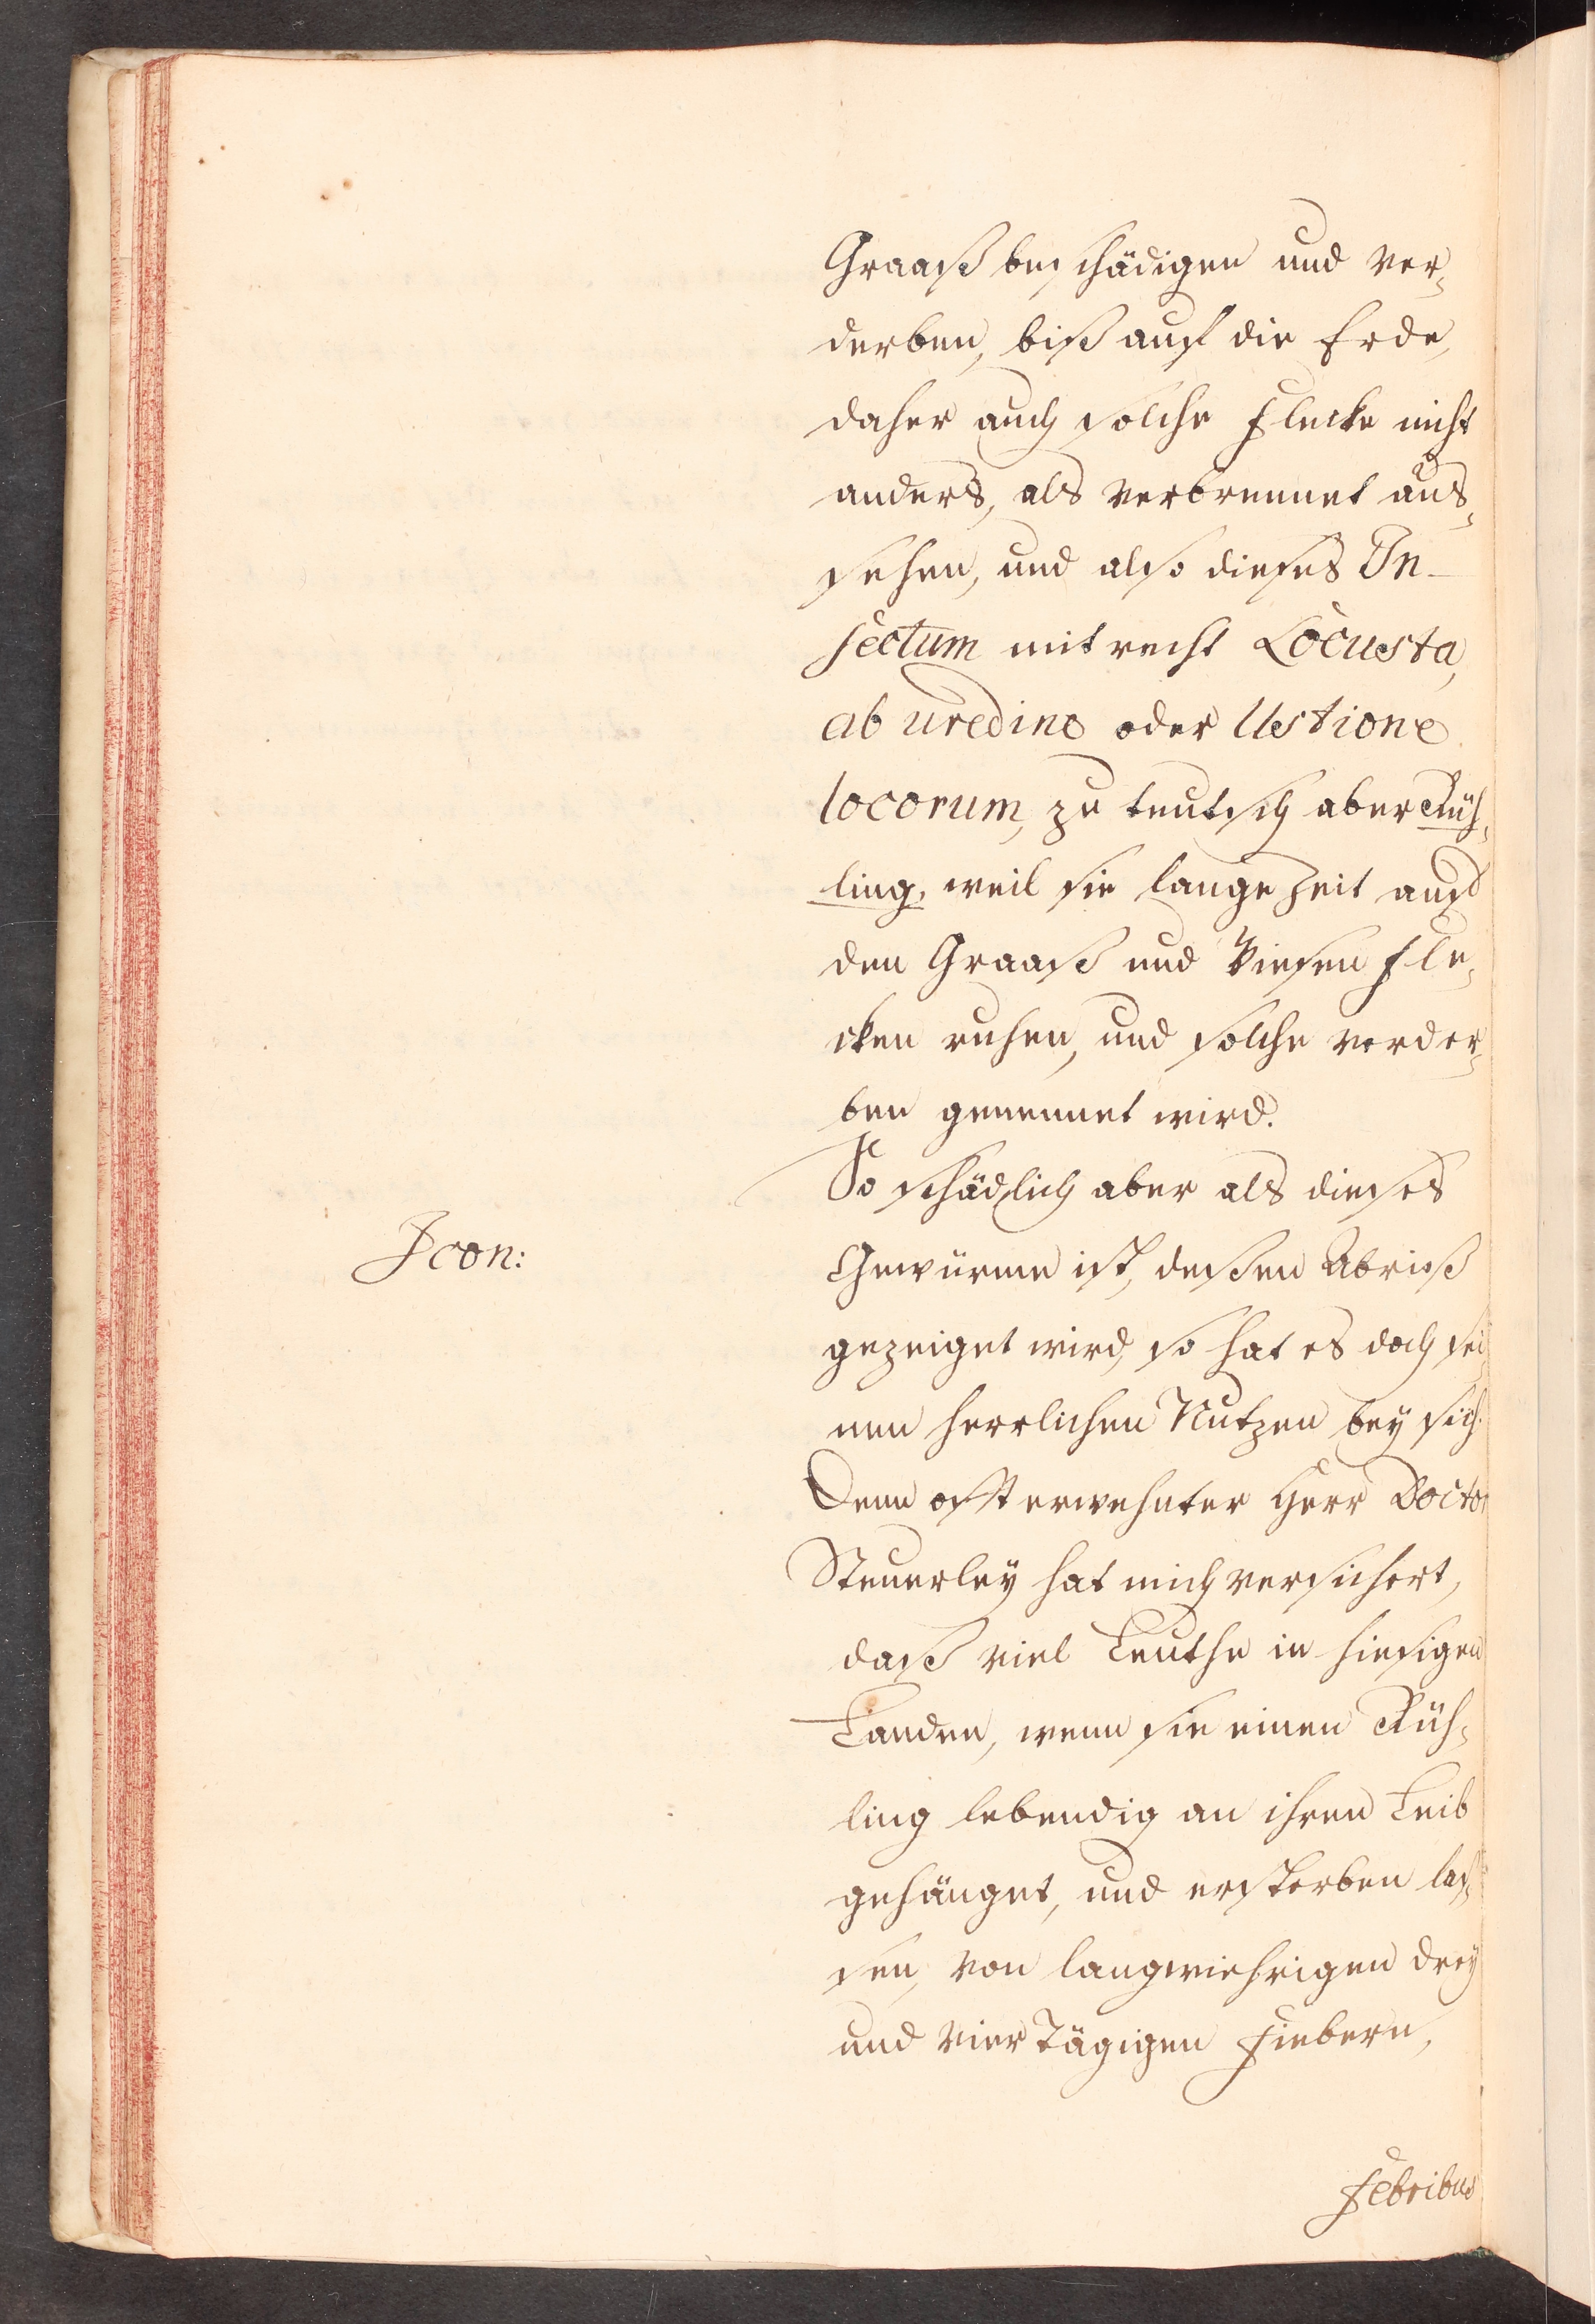 Graaß beschädigen und ver¸
derben, biß auf die Erde,
daher auch solche Flecke nicht
anders, als verbrennet aus¸
sehen, und also dieses In-
sectum mit recht Locusta,
ab uredine oder Ustione
locorum, zu teutsch aber Rüh¸
ling, weil sie lange Zeit auf
den Graaß und Wiesen Fle¸
cken ruhen, und solche verder¸
ben genennet wird.
So schädlich aber als dieses
Icon:
Gewürme ist, deßen Abriß
gezeiget wird, so hat es doch sei¸
nen herrlichen Nutzen bey sich.
Denn offt erwehnter Herr Doctor
Steuerley hat mich versichert,
daß viel Leuthe in hiesigen
Landen, wenn sie einen Rüh¸
ling lebendig an ihren Leib
gehänget, und ersterben las¸
sen, von langwiehrigen drey
und vier Tägigen Fiebern,
Febribus